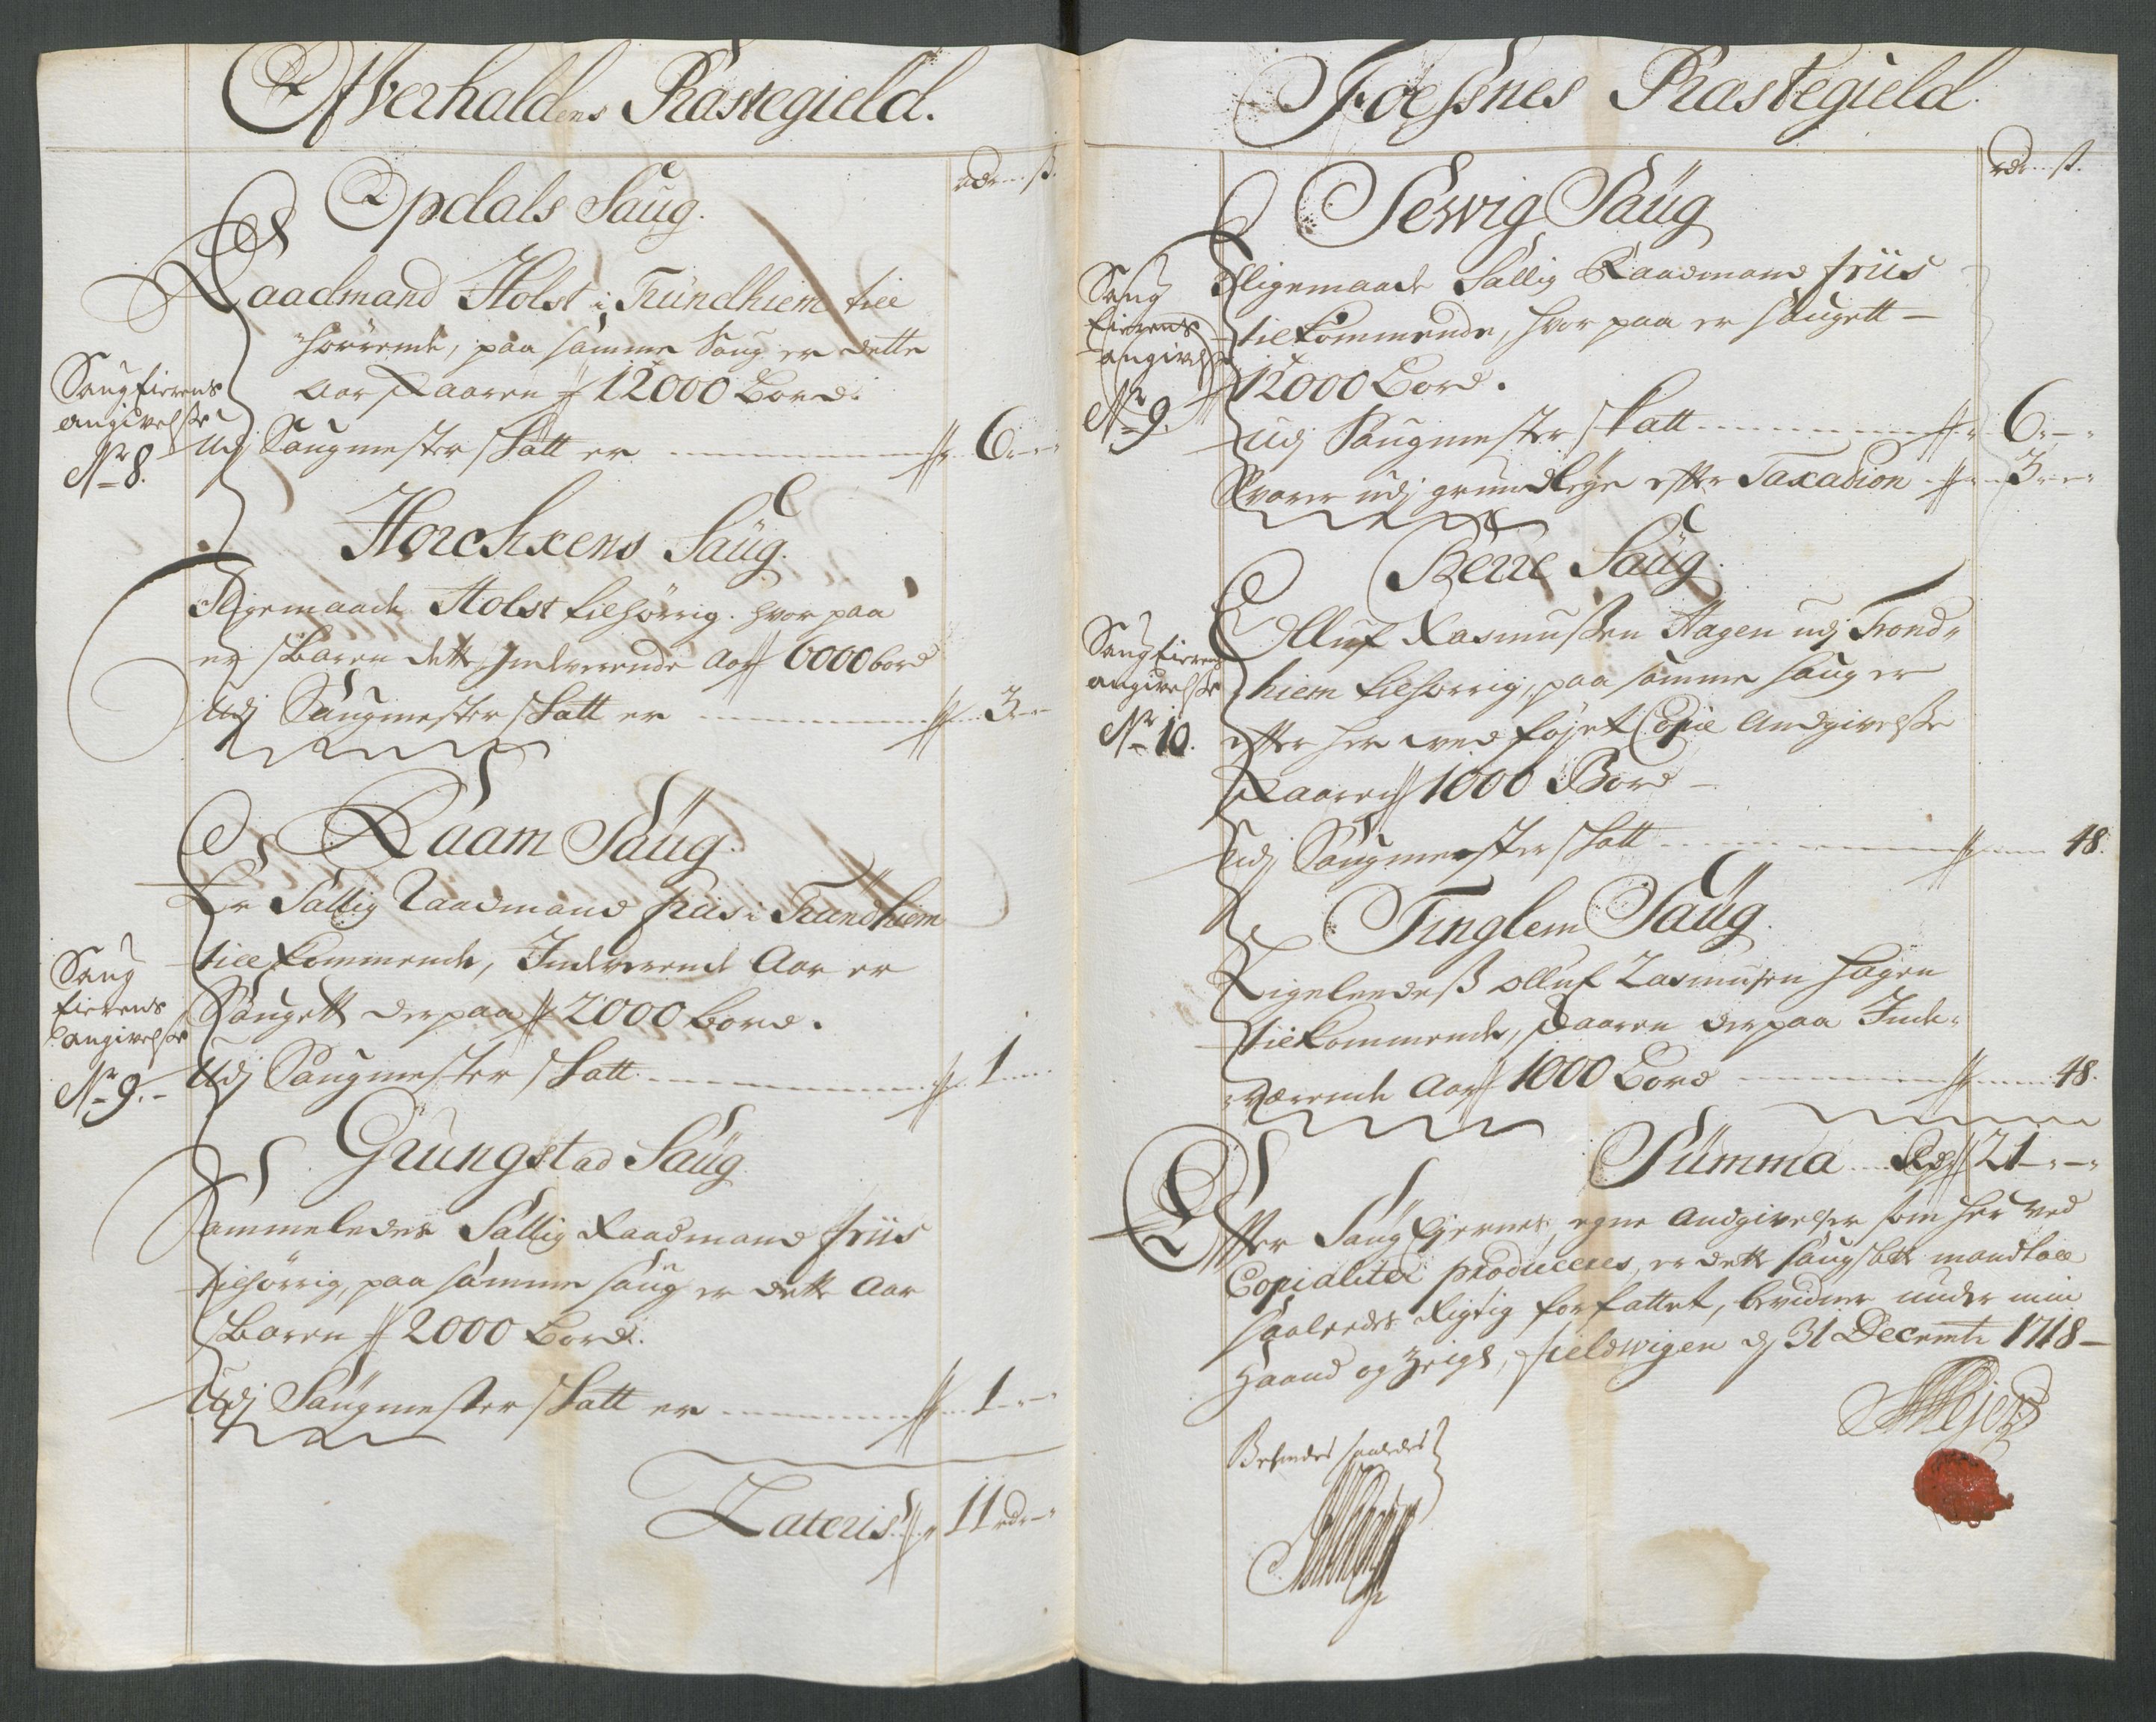 Ofverhaldens Præstegield.
rdr ß.
Opdals Saug.
Raadmand Holst i Trundhiem till
hörrende, paa samme Saug er dette
Aar skaaren 12000 Bord.
Saug Eierens
angivelsse
No 8.
Udj Saugmester skatt er 6
Horchxens Saüg.
Sligemaade Holst tilhörrig. hvor paa
er skaaren dette Indverende Aar 6000 bord
Udj Saugmester skatt er 3
Raam Saüg.
Er Sallig Raadmand friis i Trundhiem
till kommende, Indverende Aar er
Saugett derpaa 2000 bord.
Saug
Eierens
angivelsse
No 9.
Udj Saugmester skatt 1
Grungstad Saüg.
Sammeledes Sallig Raadmand friis
tilhörrig, paa samme saug er dette Aar
skaaren 2000 Bord.
Udj Saugmester skatt er 1
Lateris 11 rdr
Foessnes Præstegield.
rdr ß.
Sewig Saüg
Sligemaade Sallig Raadmand friis
tilkommende, hvor paa er saugett
12000 Bord.
Saug
Eierens
angivelsse
No 9.
udj Saugmester skatt 6
Svarer udj grundleye effter Taxasion 3
Berre Saüg.
Olluf Rasmussen Hagen udj Trond-
hiem tilhörrig, paa samme saug er
effter her wed föjet Copie Andgivelsse
skaaren 1000 Bord
Saug Eierens
angivelsse
No 10.
Udj Saugmester skatt 48.
Tinglem Saüg.
Ligeleedeß olluf Rasmusen Hagen
tilkommende, skaaren derpaa Inde-
værende Aar 1000 Bord 48.
Summa Rdr 21
Effter Saug Ejernes egne Andgivelser som her ved
Copialiter produceres, er dette saugskatt mandtall
saaleedes Rigtig forfattet, bevidner under min
Haand og Zeigl, fieldwigen d 31 Decembr 1718
Befindes saaledes